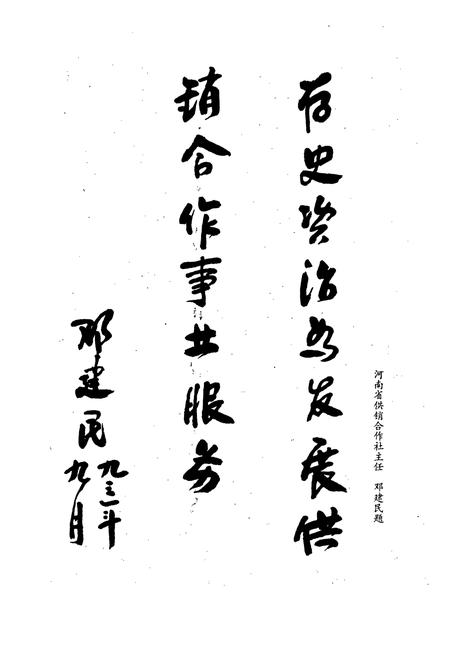 河南省供销合作社主任 邓建民题
存史资治为发展供
销合作事业服务
邓建民
九三年
九月